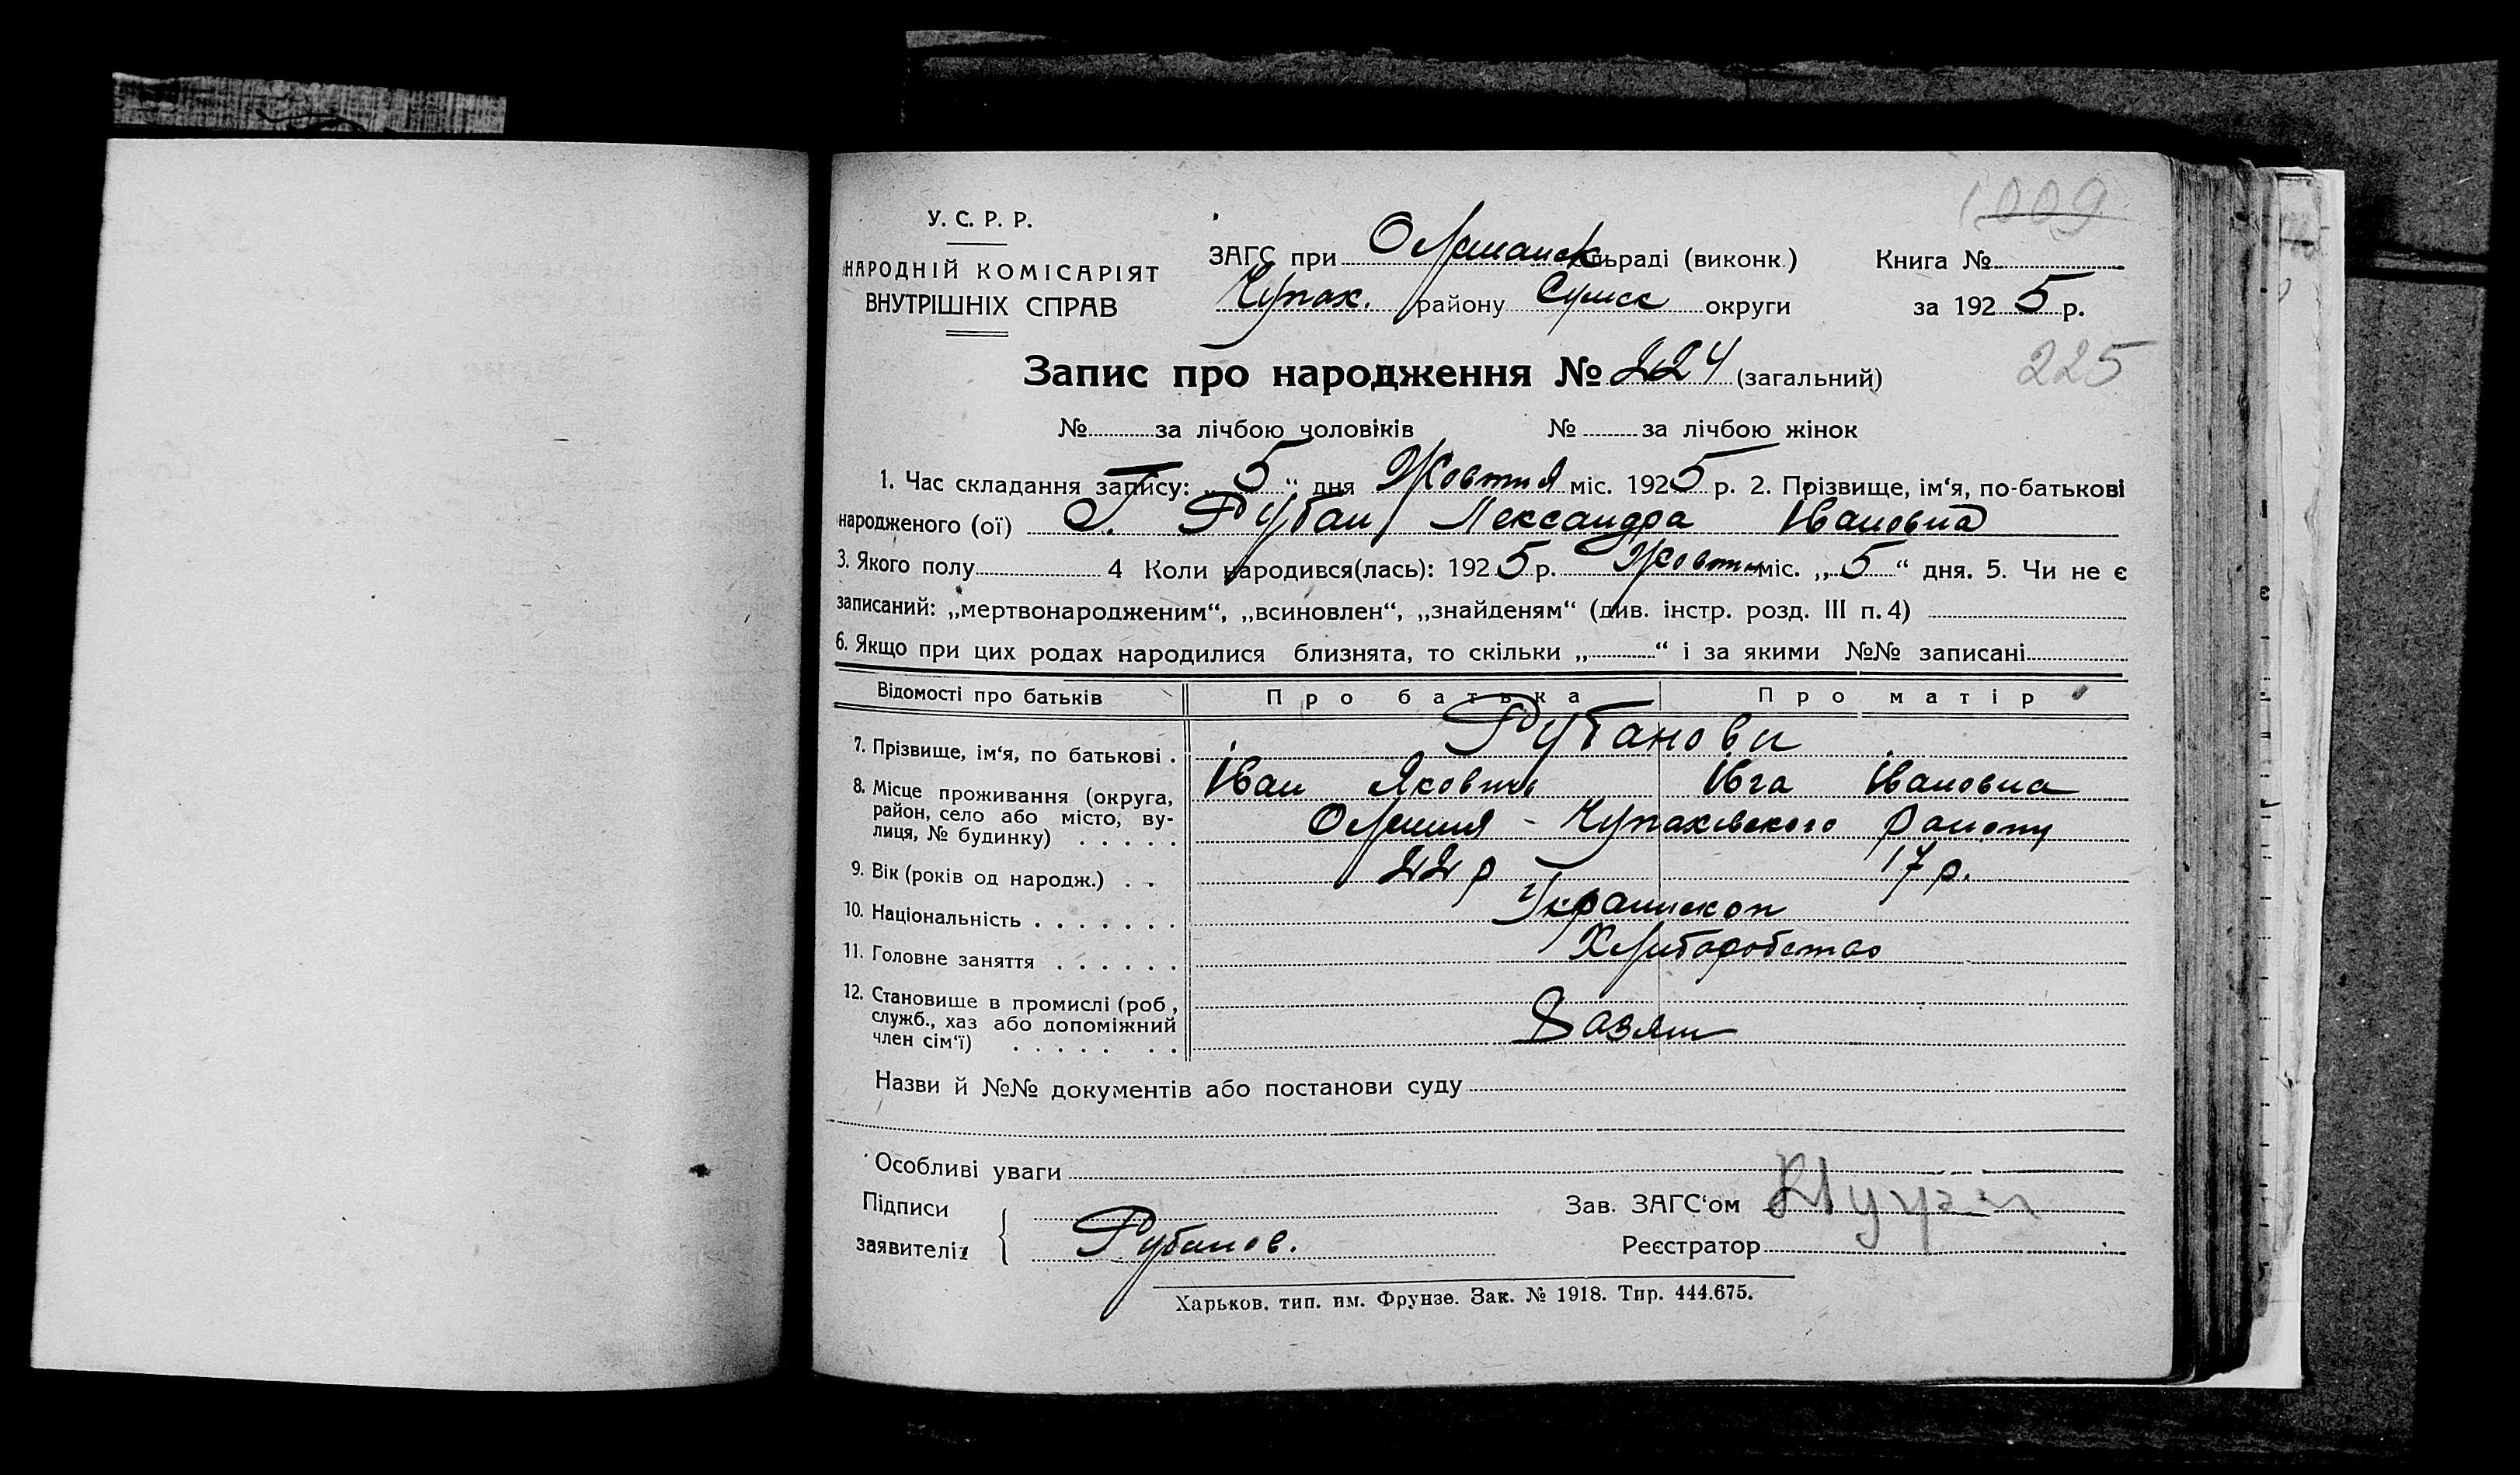 1009
У. С. Р. Р.
НАРОДНІЙ КОМІСАРІЯТ
ВНУТРІШНІХ СПРАВ
ЗАГС при Олешанск. сільраді (виконк.)
Книга №
Чупах. району Сумск округи
за 1925 р.
Запис про народження № 224 (загальний)
225
№ за лічбою чоловіків № за лічбою жінок
1. Час складання запису: „5“ дня Жовтня міс. 1925 р. 2. Прізвище, ім‘я, по-батькові
народженого (ої) Рубан Лександра Івановна
3. Якого полу 4 Коли народився(лась): 1925 р. Жовтн міс. „5“ дня. 5. Чи не є
записаний: „мертвонародженим“, „всиновлен“, „знайденям“ (див. інстр. розд. III п. 4)
6. Якщо при цих родах народилися близнята, то скільки „ “ і за якими №№ записані
Відомості про батьків Про батька Про матір
7. Прізвище, ім‘я, по батькові . Рубанови
Іван Якович Івга Івановна
8. Місце проживання (округа,
район, село або місто, ву-
лиця, № будинку) . . . . . Олешня - Чупахівского району
9. Вік (років од народж.) . . 22 р 17 р.
10. Національність . . . . . . .
11. Головне заняття . . . . . . Хлиборобство
12. Становище в промислі (роб,
служб., хаз або допоміжний
член сім‘ї) . . . . . . . Хазяин
Назви й №№ документів або постанови суду
Особливі уваги
Підписи
Зав. ЗАГС‘ом
заявителів { Рубанов.
Реєстратор
Харьков, тип. им. Фрунзе. Зак. № 1918. Тир. 444.675.